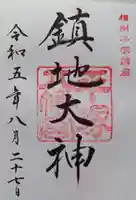 鎮地大神
令和五年八月二十七日